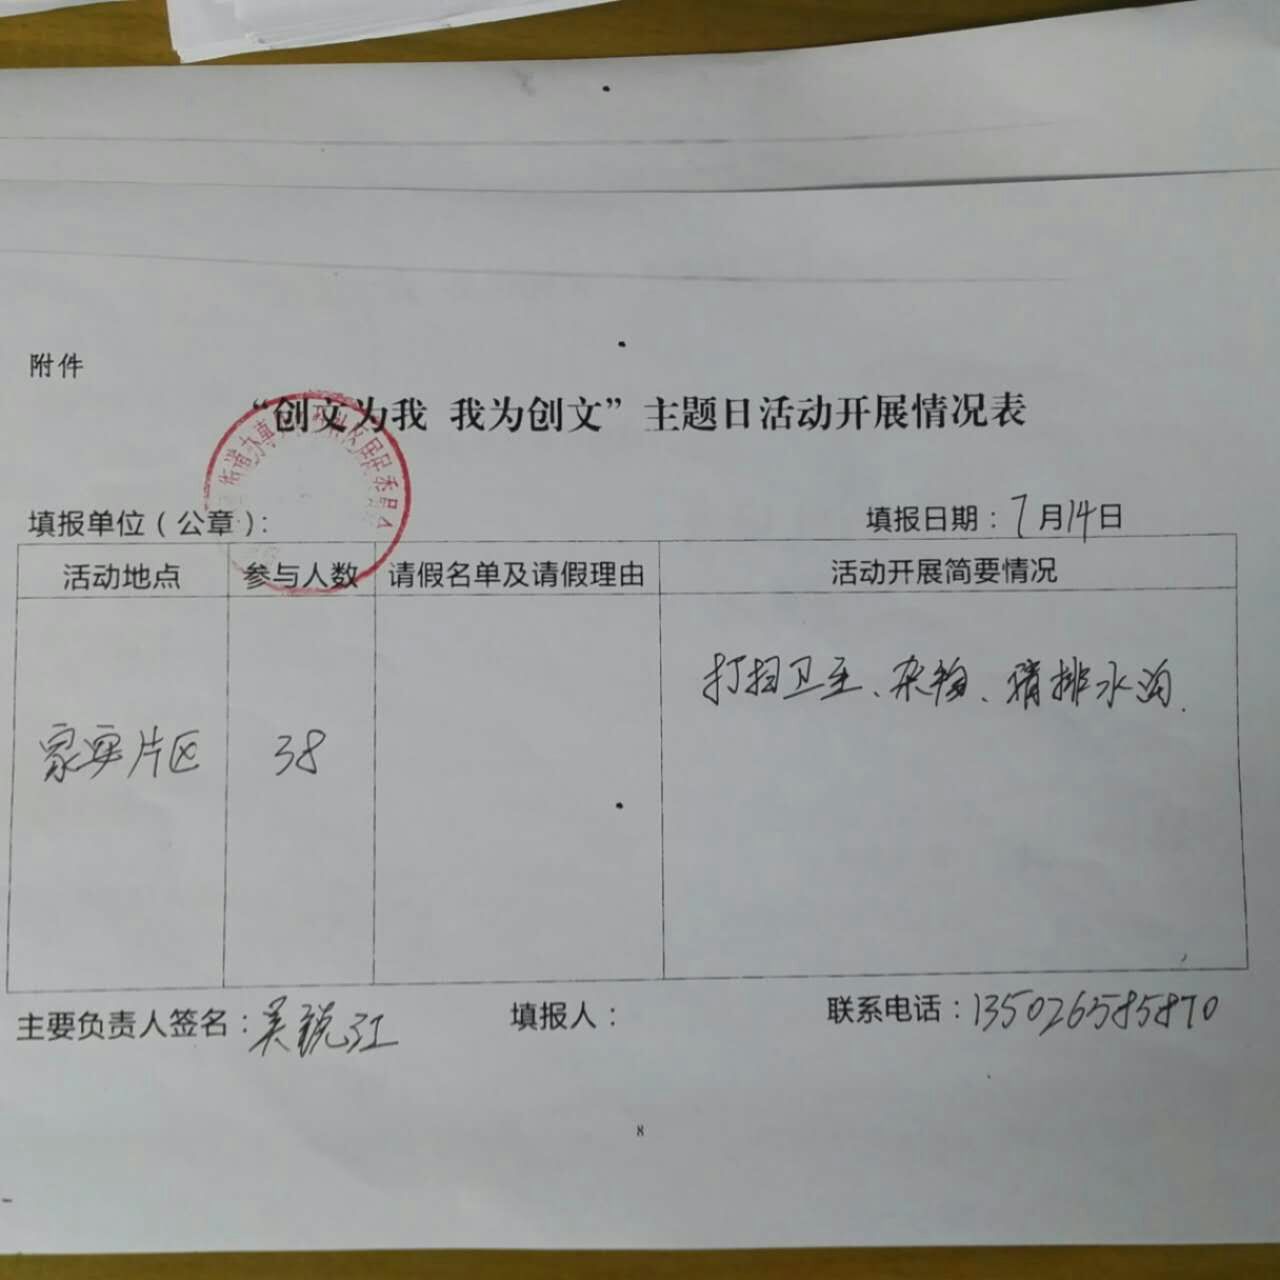 附件
“创文为我 我为创文”主题日活动开展情况表
街道办事 社区居民委员会
填报单位（公章）：
填报日期：7月14日
活动地点 参与人数 请假名单及请假理由 活动开展简要情况
打扫卫生、杂物、清排水沟.
家安片区 38
主要负责人签名：吴锐江 填报人： 联系电话：13502658 5870
8